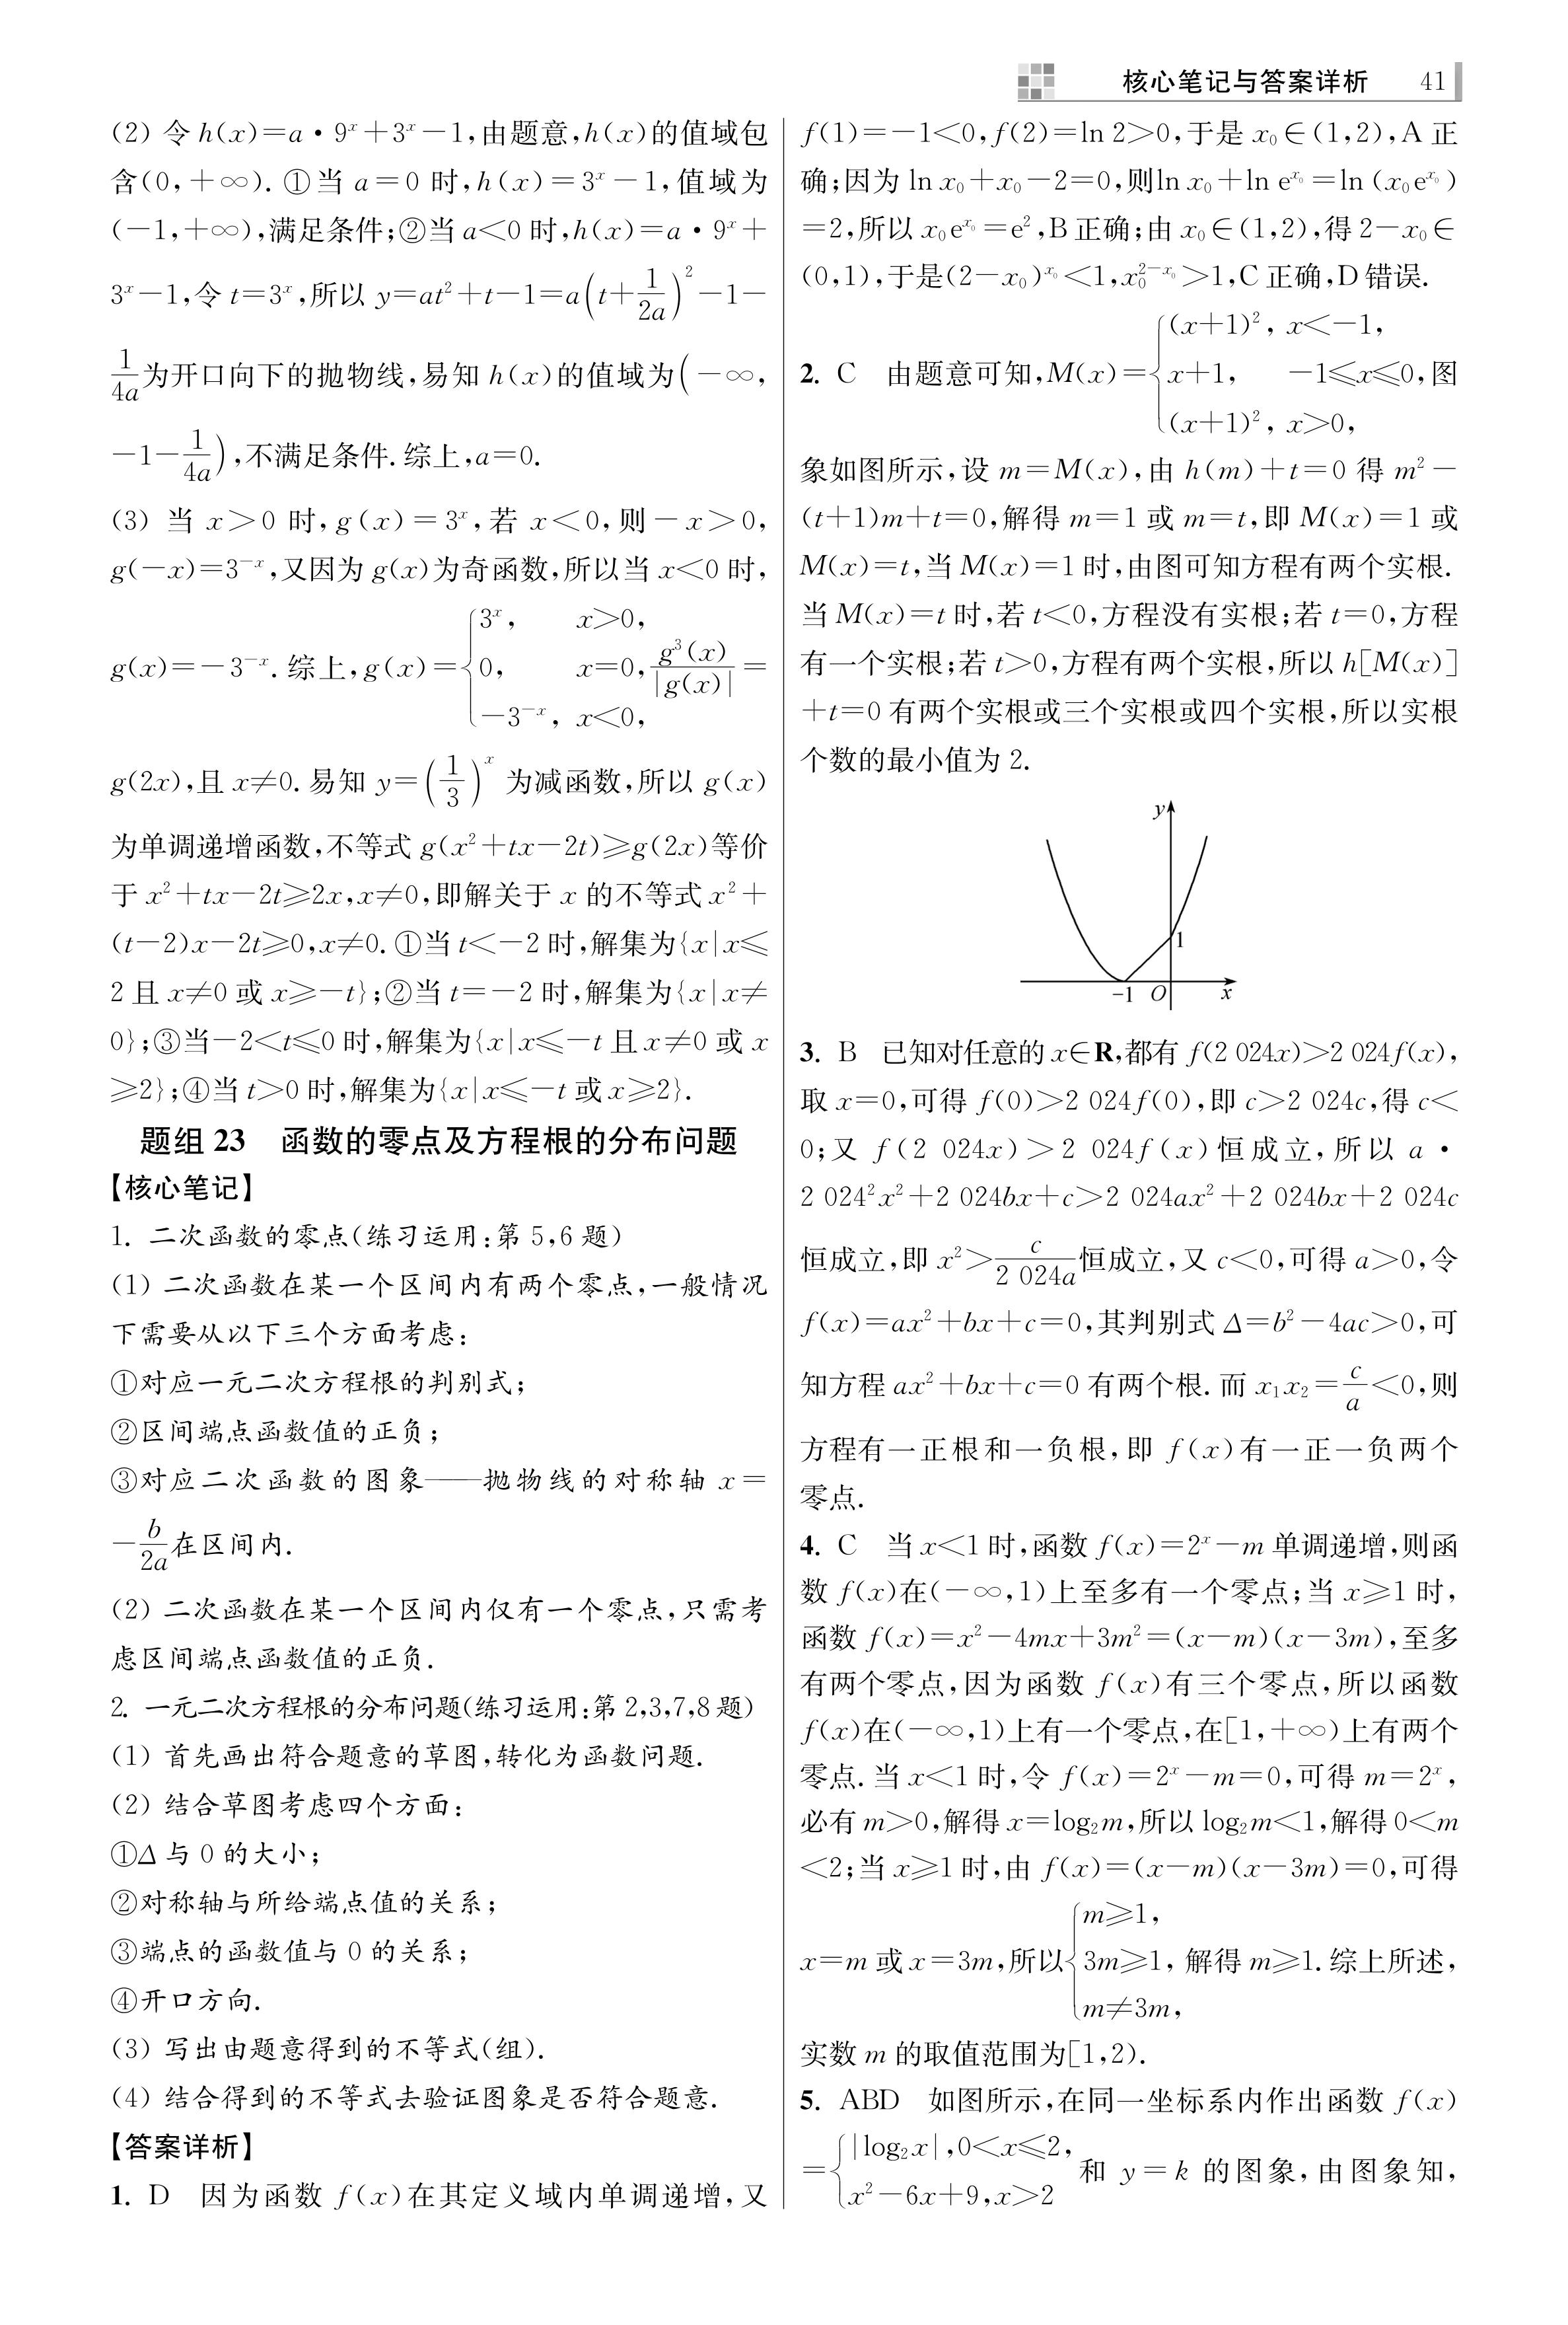 核心笔记与答案详析 41
(2) 令 h(x)=a·9ˣ+3ˣ-1,由题意,h(x)的值域包
含(0,+∞). ①当 a=0 时,h(x)=3ˣ-1,值域为
(-1,+∞),满足条件;②当 a<0 时,h(x)=a·9ˣ+
3ˣ-1,令 t=3ˣ,所以 y=at²+t-1=a(t+1/2a)²-1-
1/4a为开口向下的抛物线,易知 h(x)的值域为(-∞,
-1-1/4a),不满足条件.综上,a=0.
(3) 当 x>0 时,g(x)=3ˣ,若 x<0,则-x>0,
g(-x)=3⁻ˣ,又因为 g(x)为奇函数,所以当 x<0 时,
g(x)=-3⁻ˣ.综上,g(x)={3ˣ, x>0, 0, x=0, -3⁻ˣ, x<0, g³(x)/|g(x)|=
g(2x),且 x≠0.易知 y=(1/3)ˣ 为减函数,所以 g(x)
为单调递增函数,不等式 g(x²+tx-2t)≥g(2x)等价
于 x²+tx-2t≥2x,x≠0,即解关于 x 的不等式 x²+
(t-2)x-2t≥0,x≠0.①当 t<-2 时,解集为{x|x≤
2 且 x≠0 或 x≥-t};②当 t=-2 时,解集为{x|x≠
0};③当-2<t≤0 时,解集为{x|x≤-t 且 x≠0 或 x
≥2};④当 t>0 时,解集为{x|x≤-t 或 x≥2}.
题组 23 函数的零点及方程根的分布问题
【核心笔记】
1. 二次函数的零点(练习运用:第 5,6 题)
(1) 二次函数在某一个区间内有两个零点,一般情况
下需要从以下三个方面考虑:
①对应一元二次方程根的判别式;
②区间端点函数值的正负;
③对应二次函数的图象——抛物线的对称轴 x=
-b/2a在区间内.
(2) 二次函数在某一个区间内仅有一个零点,只需考
虑区间端点函数值的正负.
2. 一元二次方程根的分布问题(练习运用:第 2,3,7,8 题)
(1) 首先画出符合题意的草图,转化为函数问题.
(2) 结合草图考虑四个方面:
①Δ 与 0 的大小;
②对称轴与所给端点值的关系;
③端点的函数值与 0 的关系;
④开口方向.
(3) 写出由题意得到的不等式(组).
(4) 结合得到的不等式去验证图象是否符合题意.
【答案详析】
1. D 因为函数 f(x)在其定义域内单调递增,又
f(1)=-1<0,f(2)=ln 2>0,于是 x₀∈(1,2),A 正
确;因为 ln x₀+x₀-2=0,则ln x₀+ln e^{x₀}=ln (x₀e^{x₀})
=2,所以 x₀e^{x₀}=e²,B正确;由 x₀∈(1,2),得 2-x₀∈
(0,1),于是(2-x₀)^{x₀}<1,x₀^{2-x₀}>1,C 正确,D 错误.
2. C 由题意可知,M(x)={(x+1)², x<-1, x+1, -1≤x≤0, (x+1)², x>0, 图
象如图所示,设 m=M(x),由 h(m)+t=0 得 m²-
(t+1)m+t=0,解得 m=1 或 m=t,即 M(x)=1 或
M(x)=t,当 M(x)=1 时,由图可知方程有两个实根.
当 M(x)=t 时,若 t<0,方程没有实根;若 t=0,方程
有一个实根;若 t>0,方程有两个实根,所以 h[M(x)]
+t=0 有两个实根或三个实根或四个实根,所以实根
个数的最小值为 2.
y
1
-1 O x
3. B 已知对任意的 x∈R,都有 f(2 024x)>2 024f(x),
取 x=0,可得 f(0)>2 024f(0),即 c>2 024c,得 c<
0;又 f(2 024x)>2 024f(x)恒成立,所以 a·
2 024²x²+2 024bx+c>2 024ax²+2 024bx+2 024c
恒成立,即 x²>c/2 024a恒成立,又 c<0,可得 a>0,令
f(x)=ax²+bx+c=0,其判别式 Δ=b²-4ac>0,可
知方程 ax²+bx+c=0 有两个根.而 x₁x₂=c/a<0,则
方程有一正根和一负根,即 f(x)有一正一负两个
零点.
4. C 当 x<1 时,函数 f(x)=2ˣ-m 单调递增,则函
数 f(x)在(-∞,1)上至多有一个零点;当 x≥1 时,
函数 f(x)=x²-4mx+3m²=(x-m)(x-3m),至多
有两个零点,因为函数 f(x)有三个零点,所以函数
f(x)在(-∞,1)上有一个零点,在[1,+∞)上有两个
零点.当 x<1 时,令 f(x)=2ˣ-m=0,可得 m=2ˣ,
必有 m>0,解得 x=log₂m,所以 log₂m<1,解得 0<m
<2;当 x≥1 时,由 f(x)=(x-m)(x-3m)=0,可得
x=m 或 x=3m,所以{m≥1, 3m≥1, m≠3m, 解得 m≥1.综上所述,
实数 m 的取值范围为[1,2).
5. ABD 如图所示,在同一坐标系内作出函数 f(x)
={|log₂x|,0<x≤2, x²-6x+9,x>2 和 y=k 的图象,由图象知,